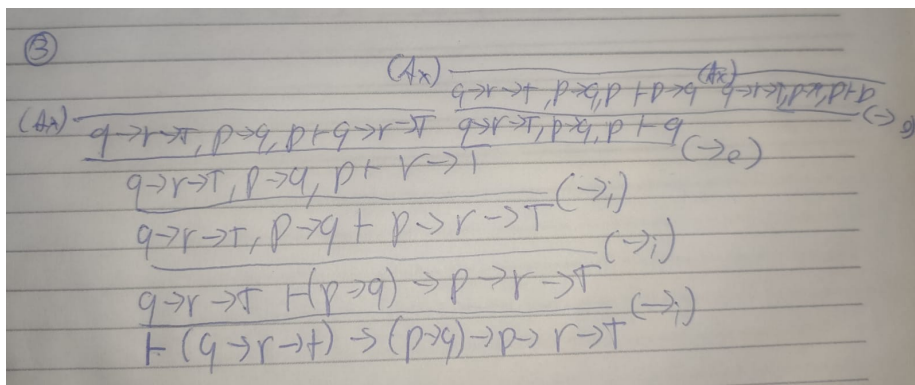 ③
(Ax)
q→r→t, p→q, p ⊢ p→q (Ax) q→r→t, p→q, p ⊢ p
(Ax) q→r→t, p→q, p ⊢ q→r→t q→r→t, p→q, p ⊢ q (→e)
q→r→t, p→q, p ⊢ r→t (→e)
q→r→t, p→q ⊢ p→r→t (→i)
q→r→t ⊢ (p→q)→p→r→t (→i)
⊢ (q→r→t)→(p→q)→p→r→t (→i)